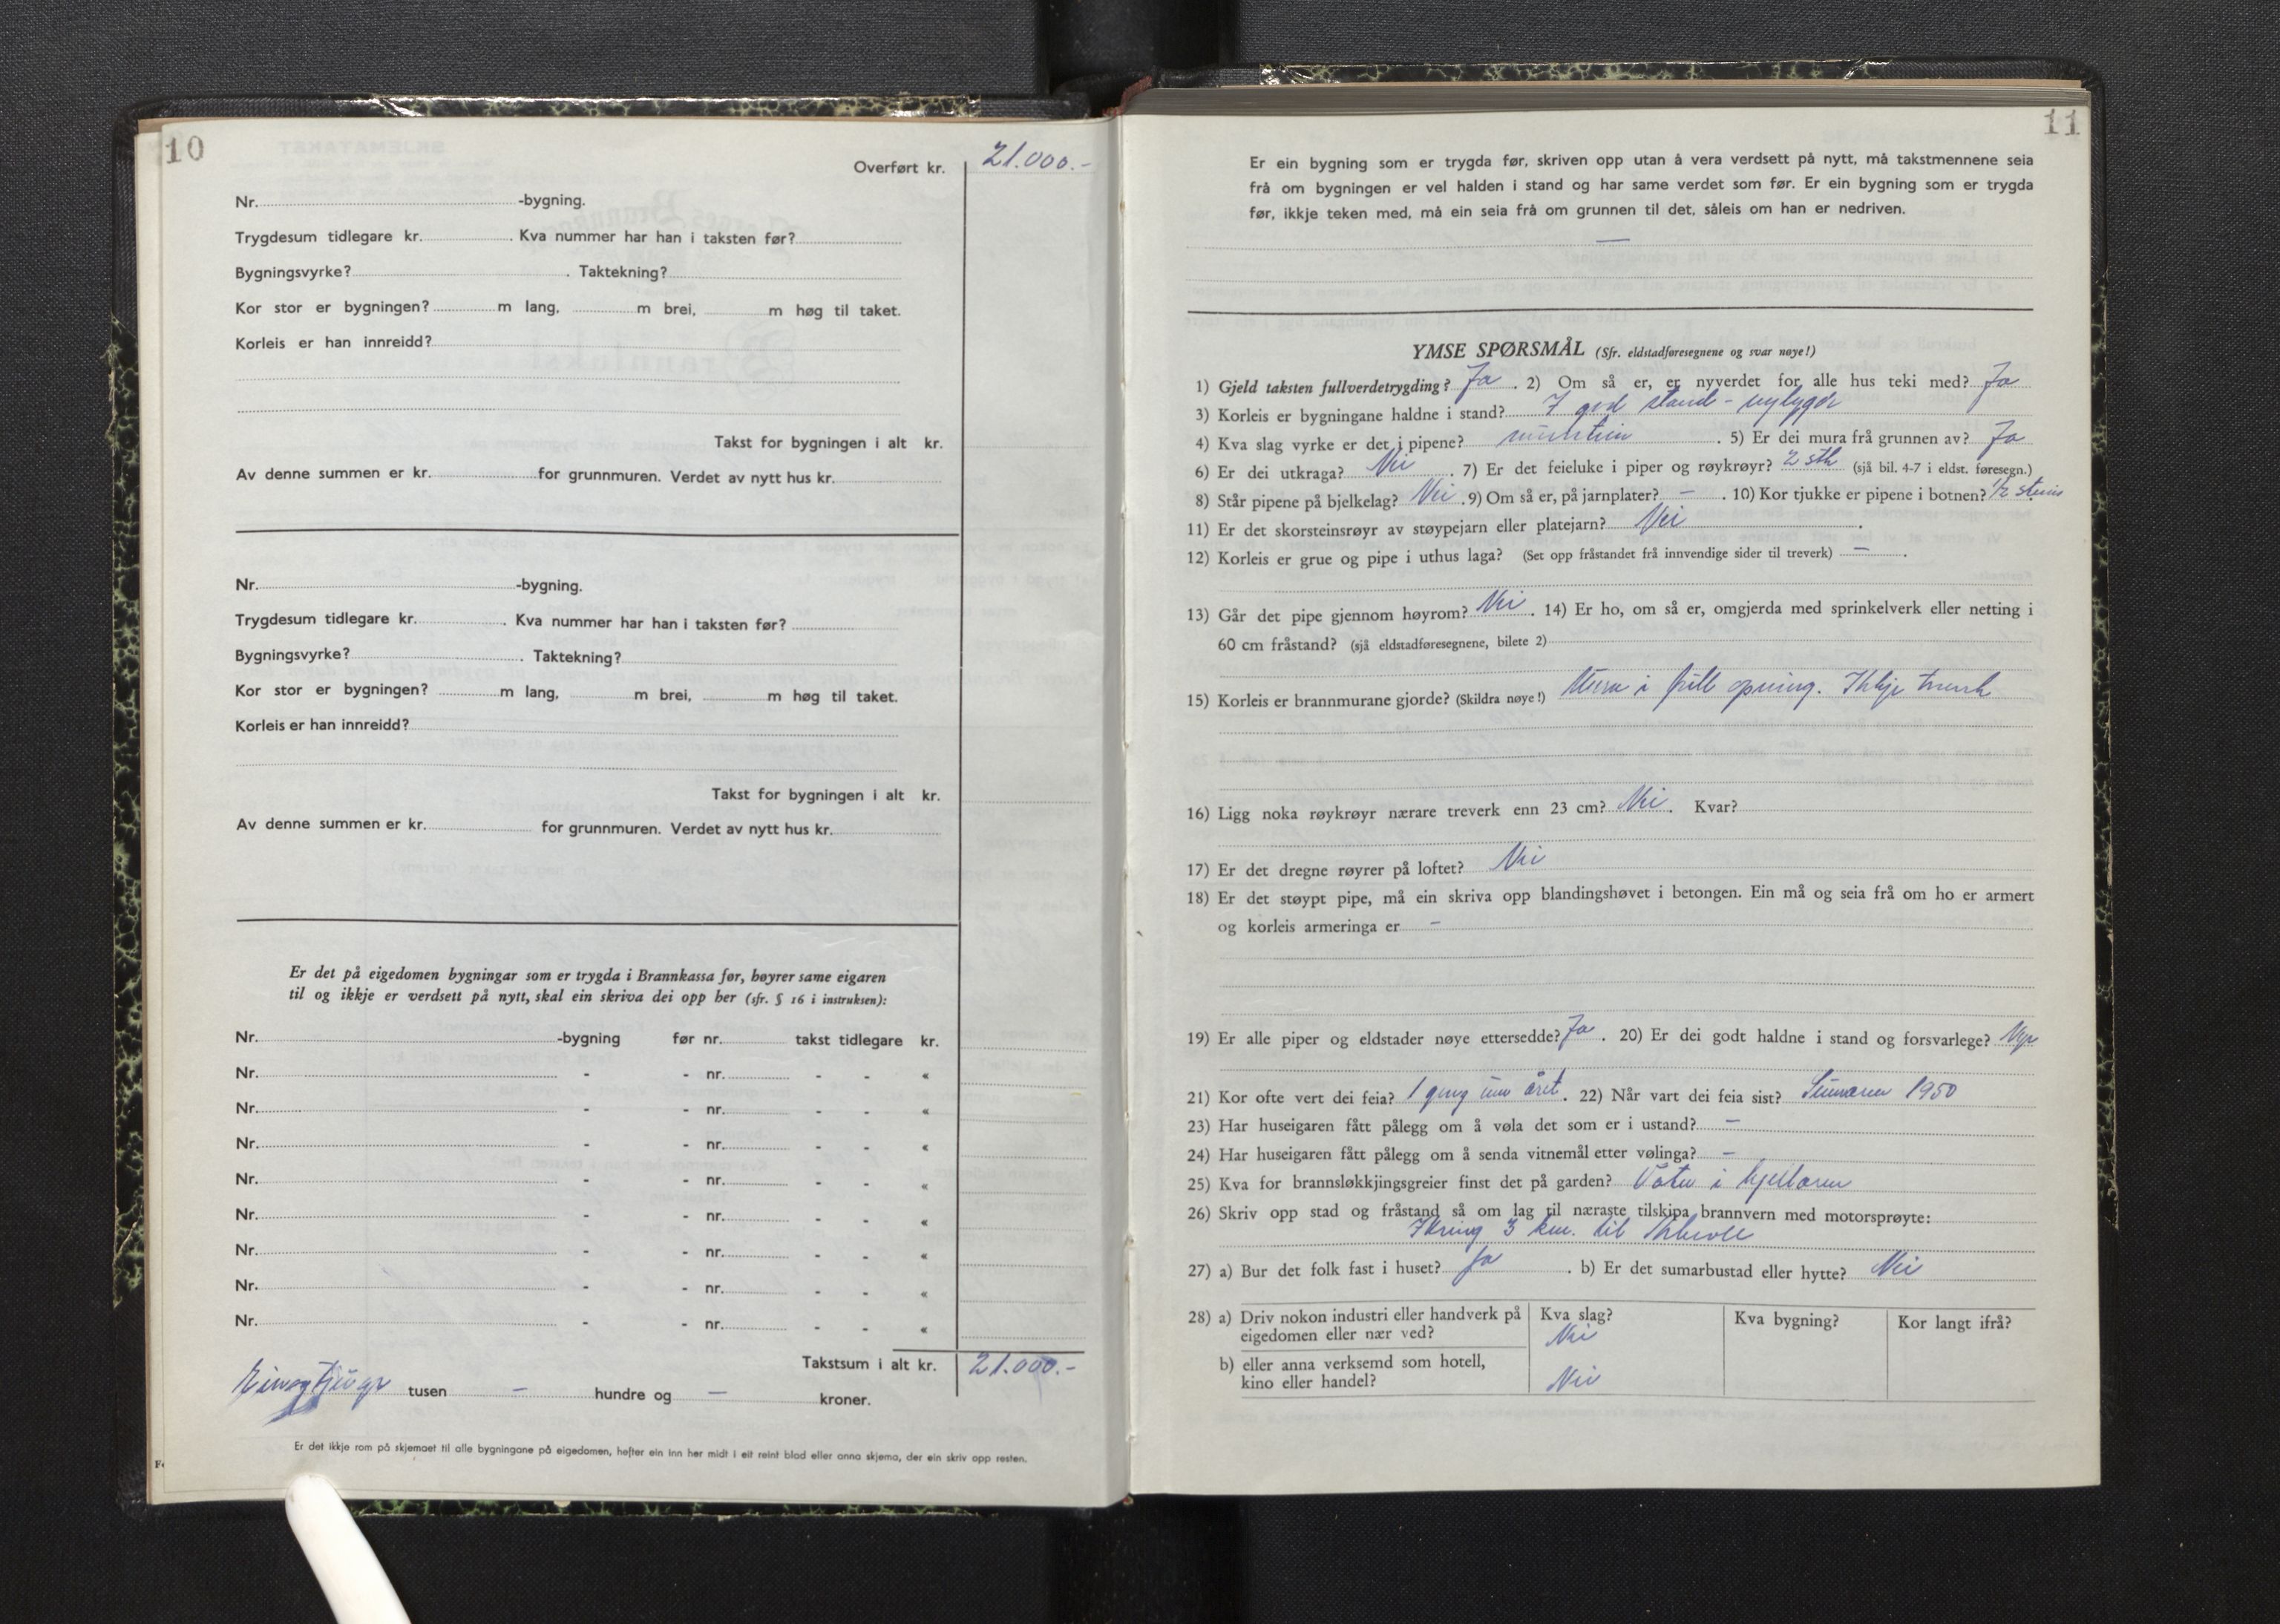 10
Overført kr. 21.000.-
Nr. -bygning.
Trygdesum tidlegare kr. . Kva nummer har han i taksten før?
Bygningsvyrke? . Taktekning?
Kor stor er bygningen? m lang, m brei, m høg til taket.
Korleis er han innreidd?
Takst for bygningen i alt kr.
Av denne summen er kr. for grunnmuren. Verdet av nytt hus kr.
Nr. -bygning.
Trygdesum tidlegare kr. . Kva nummer har han i taksten før?
Bygningsvyrke? . Taktekning?
Kor stor er bygningen? m lang, m brei, m høg til taket.
Korleis er han innreidd?
Takst for bygningen i alt kr.
Av denne summen er kr. for grunnmuren. Verdet av nytt hus kr.
Er det på eigedomen bygningar som er trygda i Brannkassa før, høyrer same eigaren
til og ikkje er verdsett på nytt, skal ein skriva dei opp her (sfr. § 16 i instruksen):
Nr. -bygning før nr. takst tidlegare kr.
Nr. - - nr. - - «
Nr. - - nr. - - «
Nr. - - nr. - - «
Nr. - - nr. - - «
Nr. - - nr. - - «
Nr. - - nr. - - «
Nr. - - nr. - - «
Nr. - - nr. - - «
Takstsum i alt kr. 21.000.-
Einogtjuge tusen - hundre og - kroner.
Er det ikkje rom på skjemaet til alle bygningane på eigedomen, hefter ein inn her midt i eit reint blad eller anna skjema, der ein skriv opp resten.
11
Er ein bygning som er trygda før, skriven opp utan å vera verdsett på nytt, må takstmennene seia
frå om bygningen er vel halden i stand og har same verdet som før. Er ein bygning som er trygda
før, ikkje teken med, må ein seia frå om grunnen til det, såleis om han er nedriven.
—
YMSE SPØRSMÅL (Sfr. eldstadføresegnene og svar nøye!)
1) Gjeld taksten fullverdetrygding? Ja . 2) Om så er, er nyverdet for alle hus teki med? Ja
3) Korleis er bygningane haldne i stand? I god stand - nybygde
4) Kva slag vyrke er det i pipene? murstein . 5) Er dei mura frå grunnen av? Ja
6) Er dei utkraga? Nei . 7) Er det feieluke i piper og røykrøyr? 2 stk (sjå bil. 4-7 i eldst. føresegn.)
8) Står pipene på bjelkelag? Nei . 9) Om så er, på jarnplater? - . 10) Kor tjukke er pipene i botnen? 1/2 steins
11) Er det skorsteinsrøyr av støypejarn eller platejarn? Nei .
12) Korleis er grue og pipe i uthus laga? (Set opp fråstandet frå innvendige sider til treverk) - .
13) Går det pipe gjennom høyrom? Nei . 14) Er ho, om så er, omgjerda med sprinkelverk eller netting i
60 cm fråstand? (sjå eldstadføresegnene, bilete 2)
15) Korleis er brannmurane gjorde? (Skildra nøye!) Mura i full opning. Ikkje treverk
16) Ligg noka røykrøyr nærare treverk enn 23 cm? Nei . Kvar?
17) Er det dregne røyrer på loftet? Nei
18) Er det støypt pipe, må ein skriva opp blandingshøvet i betongen. Ein må og seia frå om ho er armert
og korleis armeringa er -
19) Er alle piper og eldstader nøye ettersedde? Ja . 20) Er dei godt haldne i stand og forsvarlege? Nye
21) Kor ofte vert dei feia? 1 gong um året . 22) Når vart dei feia sist? Sumaren 1950
23) Har huseigaren fått pålegg om å vøla det som er i ustand? -
24) Har huseigaren fått pålegg om å senda vitnemål etter vølinga? -
25) Kva for brannsløkkjingsgreier finst det på garden? Vatn i kjellaren
26) Skriv opp stad og fråstand så om lag til næraste tilskipa brannvern med motorsprøyte:
Ikring 3 km. til
27) a) Bur det folk fast i huset? Ja . b) Er det sumarbustad eller hytte? Nei
28) a) Driv nokon industri eller handverk på Kva slag? Kva bygning? Kor langt ifrå?
eigedomen eller nær ved? Nei
b) eller anna verksemd som hotell,
kino eller handel? Nei